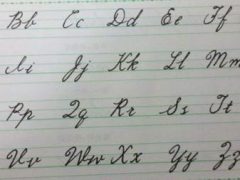 Bb Cc Dd Ee Ff
Ii Jj Kk Ll Mm
Pp Qq Rr Ss Tt
Vv Ww Xx Yy Zz